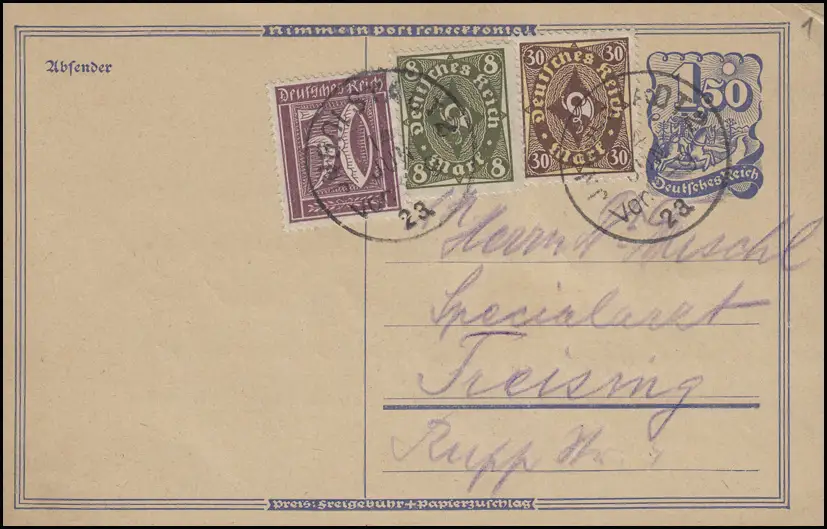 Nimm ein Postscheckkonto!
Absender
Deutsches Reich
50
8 8
Deutsches Reich
8 Mark 8
30 30
Deutsches Reich
30 Mark 30
1,50
Deutsches Reich
1
Vor. 23
Vor. 23
Herrn
Specialarzt
Freising
Rupp
Preis: Freigebühr + Papierzuschlag